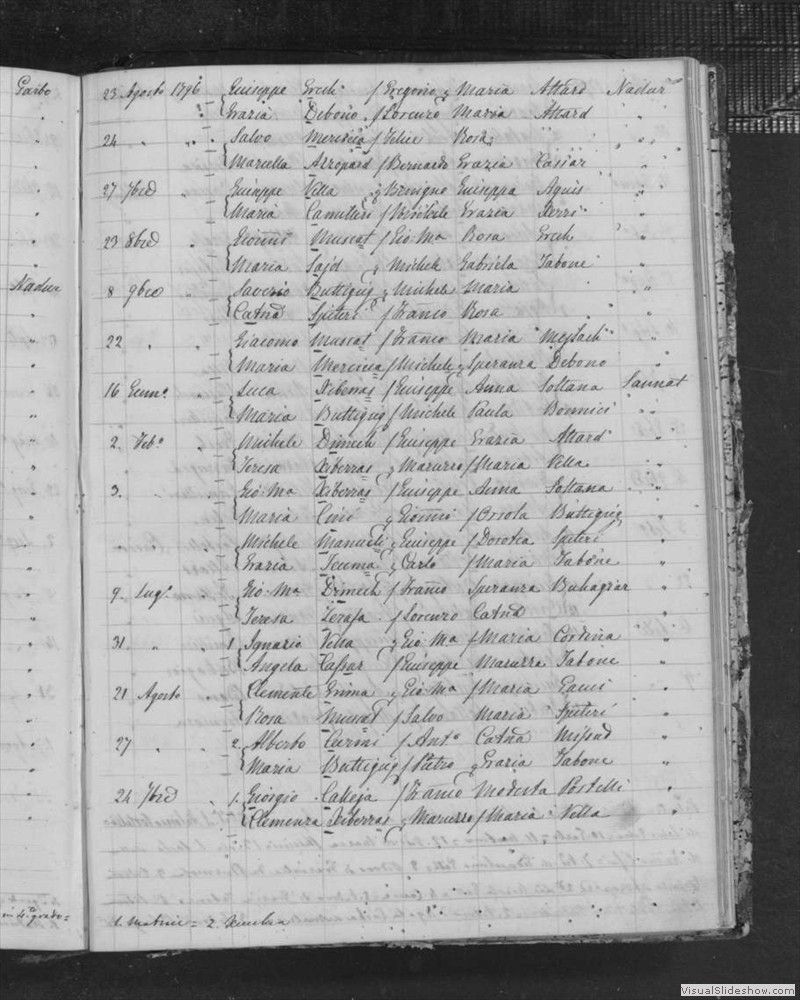 Garbo
23 Agosto 1796 Giuseppe Erch f Gregorio q Maria Attard Nadur
Grazia Debono f Lorenzo Maria Attard
24 Salvo Mercieca f Felice Rosa
Marcella Azzopard f Bernardo Grazia Cassar
27 7bre Giuseppe Vella q Benigno Giuseppa Agius
Maria Camilleri f Grazia
23 8bre Gionni Muscat f Gio Ma Rosa Erch
Maria Sajd q Michele Gabriela Tabone
Nadur
8 9bre Saverio Buttigieg q Michele Maria
Catna Spiteri f Franco Rosa
22 Giacomo Muscat f Franco Maria
Maria Mercieca f Michele q Speranza Debono
16 Genno. Luca Xiberras f Giuseppe Anna Soltana Sannat
Maria Buttigieg f Michele Paula Bonnici
2. Febo Michele Dimech f Giuseppe Grazia Attard
Teresa Xiberras q Maruzzo f Maria Vella
3. Gio: Ma Xiberras f Giuseppe Anna Soltana
Maria Cini q Gionni f Orsola Buttigieg
Michele Manueli q Giuseppe f Dorotea Spiteri
Grazia Teuma q Carlo f Maria Tabone
9. Lugo. Gio: Ma Dimech f Franco Speranza Buhagiar
Teresa Zerafa f Lorenzo Catna
31. 1 Ignazio Vella q Gio Ma f Maria Cordina
Angela Cassar f Giuseppe Maruzza Tabone
21 Agosto Clemente Grima q Gio Ma f Maria
Rosa Muscat f Salvo Maria Spiteri
27 2. Alberto Curmi f Anto Catna Mifsud
Maria Buttigieg f Pietro q Grazia Tabone
24 7bre 1. Giorgio Calleja f Franco Modesta Portelli
Clemenza Xiberras q Maruzzo f Maria Vella
in 4o grado=
1. Matrice = 2. Xeuchia
VisualSlideshow.com